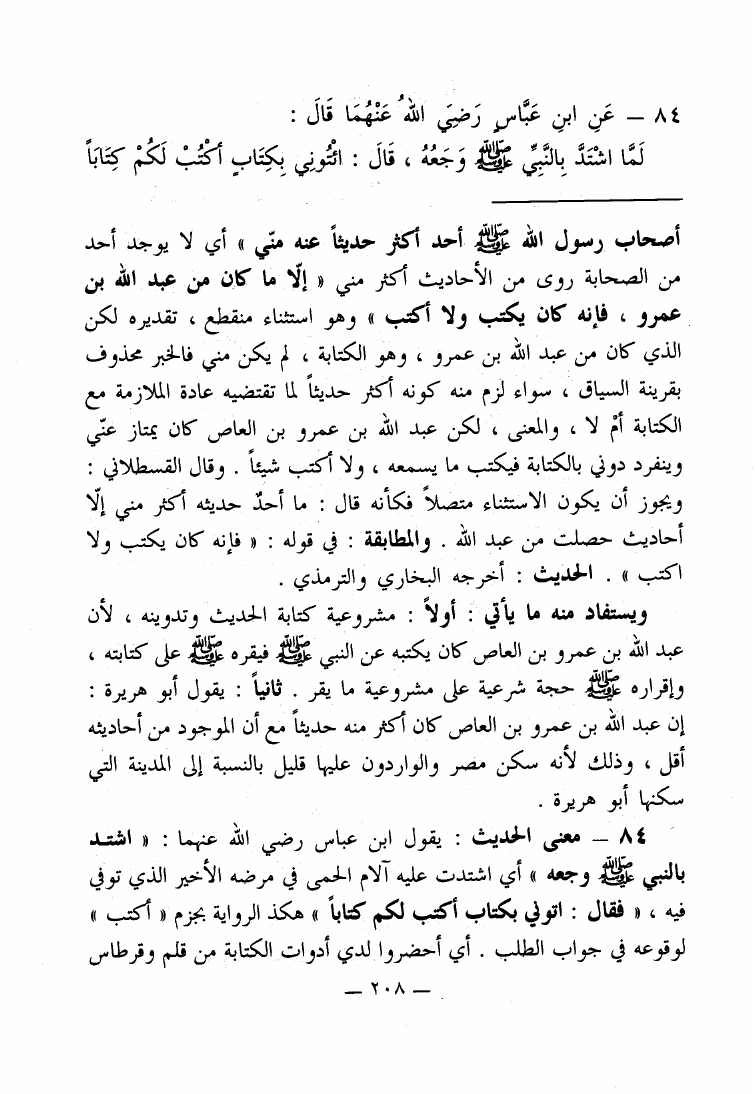 ٨٤ – عَنِ ابنِ عَبَّاسٍ رَضِيَ اللهُ عَنْهُمَا قَالَ :
لَمَّا اشْتَدَّ بِالنَّبِيِّ ﷺ وَجَعُهُ ، قَالَ : ائْتُونِي بِكِتَابٍ أكْتُبْ لَكُمْ كِتَابَاً
أصحاب رسول الله ﷺ أحد أكثر حديثاً عنه منّي » أي لا يوجد أحد
من الصحابة روى من الأحاديث أكثر مني « إلّا ما كان من عبد الله بن
عمرو ، فإنه كان يكتب ولا أكتب » وهو استثناء منقطع ، تقديره لكن
الذي كان من عبد الله بن عمرو ، وهو الكتابة ، لم يكن مني فالخبر محذوف
بقرينة السياق ، سواء لزم منه كونه أكثر حديثاً لما تقتضيه عادة الملازمة مع
الكتابة أمْ لا ، والمعنى ، لكن عبد الله بن عمرو بن العاص كان يمتاز عنّي
وينفرد دوني بالكتابة فيكتب ما يسمعه ، ولا أكتب شيئاً . وقال القسطلاني :
ويجوز أن يكون الاستثناء متصلاً فكأنه قال : ما أحدٌ حديثه أكثر مني إلّا
أحاديث حصلت من عبد الله . والمطابقة : في قوله : « فإنه كان يكتب ولا
اكتب » . الحديث : أخرجه البخاري والترمذي .
ويستفاد منه ما يأتي : أولاً : مشروعية كتابة الحديث وتدوينه ، لأن
عبد الله بن عمرو بن العاص كان يكتبه عن النبي ﷺ فيقره ﷺ على كتابته ،
وإقراره ﷺ حجة شرعية على مشروعية ما يقر . ثانياً : يقول أبو هريرة :
إن عبد الله بن عمرو بن العاص كان أكثر منه حديثاً مع أن الموجود من أحاديثه
أقل ، وذلك لأنه سكن مصر والواردون عليها قليل بالنسبة إلى المدينة التي
سكنها أبو هريرة .
٨٤ – معنى الحديث : يقول ابن عباس رضي الله عنهما : « اشتد
بالنبي ﷺ وجعه » أي اشتدت عليه آلام الحمى في مرضه الأخير الذي توفي
فيه ، « فقال : اتوني بكتاب أكتب لكم كتاباً » هكذ الرواية بجزم « أكتب »
لوقوعه في جواب الطلب . أي أحضروا لدي أدوات الكتابة من قلم وقرطاس
– ٢٠٨ –